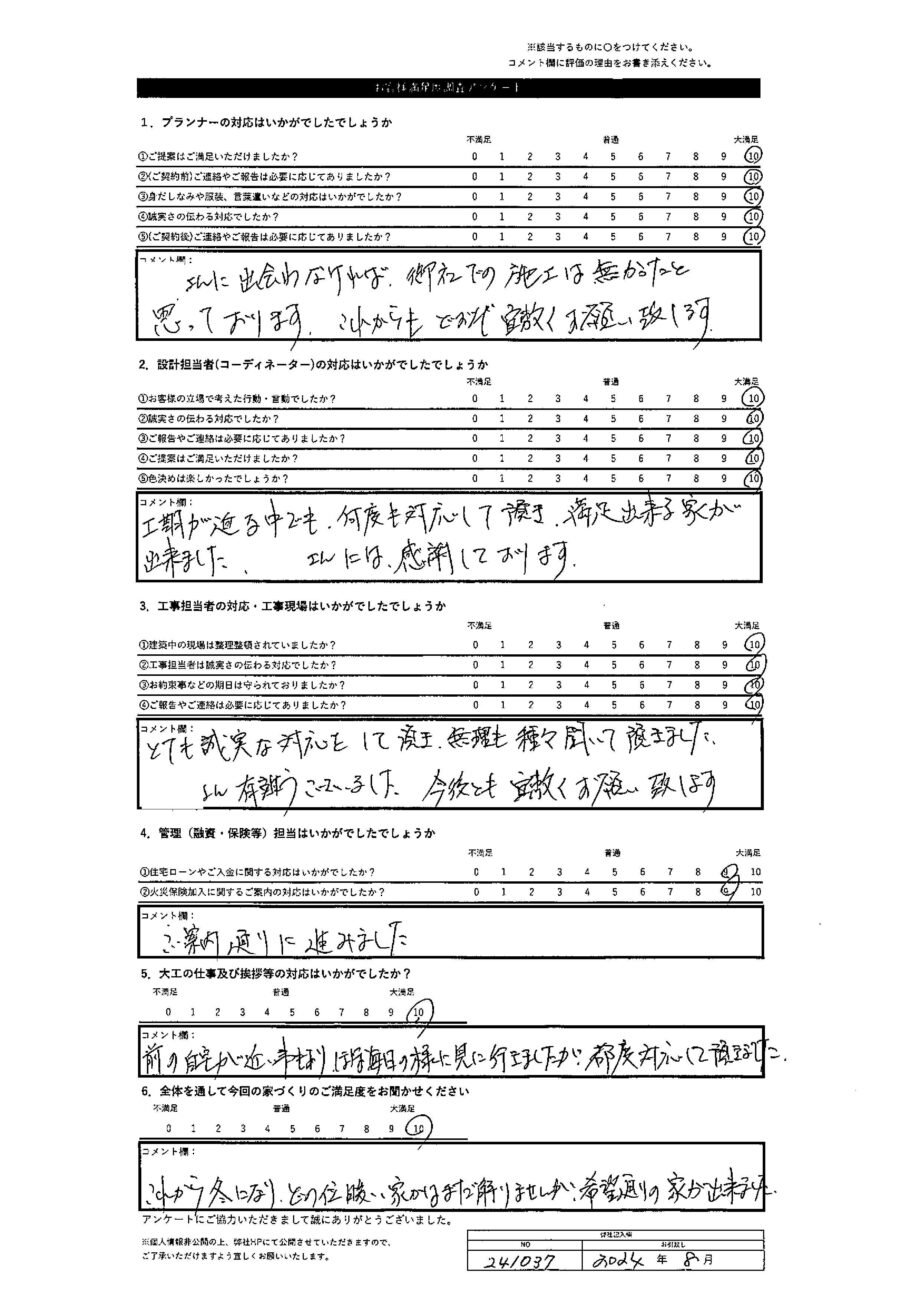 ※該当するものに〇をつけてください。
コメント欄に評価の理由をお書き添えください。
お客様満足度調査アンケート
1．プランナーの対応はいかがでしたでしょうか
不満足 普通 大満足
①ご提案はご満足いただけましたか？ 0 1 2 3 4 5 6 7 8 9 10
②(ご契約前)ご連絡やご報告は必要に応じてありましたか？ 0 1 2 3 4 5 6 7 8 9 10
③身だしなみや服装、言葉遣いなどの対応はいかがでしたか？ 0 1 2 3 4 5 6 7 8 9 10
④誠実さの伝わる対応でしたか？ 0 1 2 3 4 5 6 7 8 9 10
⑤(ご契約後)ご連絡やご報告は必要に応じてありましたか？ 0 1 2 3 4 5 6 7 8 9 10
コメント欄：
さんに出会わなければ、御社での施工は無かったと
思っております。これからもどうぞ宜敷くお願い致します。
2．設計担当者(コーディネーター)の対応はいかがでしたでしょうか
不満足 普通 大満足
①お客様の立場で考えた行動・言動でしたか？ 0 1 2 3 4 5 6 7 8 9 10
②誠実さの伝わる対応でしたか？ 0 1 2 3 4 5 6 7 8 9 10
③ご報告やご連絡は必要に応じてありましたか？ 0 1 2 3 4 5 6 7 8 9 10
④ご提案はご満足いただけましたか？ 0 1 2 3 4 5 6 7 8 9 10
⑤色決めは楽しかったでしょうか？ 0 1 2 3 4 5 6 7 8 9 10
コメント欄：
工期が迫る中でも、何度も対応して頂き、満足出来る家が
出来ました、 さんには、感謝しております。
3．工事担当者の対応・工事現場はいかがでしたでしょうか
不満足 普通 大満足
①建築中の現場は整理整頓されていましたか？ 0 1 2 3 4 5 6 7 8 9 10
②工事担当者は誠実さの伝わる対応でしたか？ 0 1 2 3 4 5 6 7 8 9 10
③お約束事などの期日は守られておりましたか？ 0 1 2 3 4 5 6 7 8 9 10
④ご報告やご連絡は必要に応じてありましたか？ 0 1 2 3 4 5 6 7 8 9 10
コメント欄：
とても誠実な対応をして頂き、無理も種々聞いて頂きました、
さん有難うございました 今後とも宜敷くお願い致します
4．管理（融資・保険等）担当はいかがでしたでしょうか
不満足 普通 大満足
①住宅ローンやご入金に関する対応はいかがでしたか？ 0 1 2 3 4 5 6 7 8 9 10
②火災保険加入に関するご案内の対応はいかがでしたか？ 0 1 2 3 4 5 6 7 8 9 10
コメント欄：
ご案内通りに進みました
5．大工の仕事及び挨拶等の対応はいかがでしたか？
不満足 普通 大満足
0 1 2 3 4 5 6 7 8 9 10
コメント欄：
前の自宅が近い事もありほぼ毎日の様に見に行きましたが、都度対応して頂きました。
6．全体を通して今回の家づくりのご満足度をお聞かせください
不満足 普通 大満足
0 1 2 3 4 5 6 7 8 9 10
コメント欄：
これから冬になり、どの位暖い家かはまだ解りませんが、希望通りの家が出来ました
アンケートにご協力いただきまして誠にありがとうございました。
※個人情報非公開の上、弊社HPにて公開させていただきますので、
ご了承いただけますよう宜しくお願いいたします。
弊社記入欄
NO お引渡し
241037 2024 年 8 月